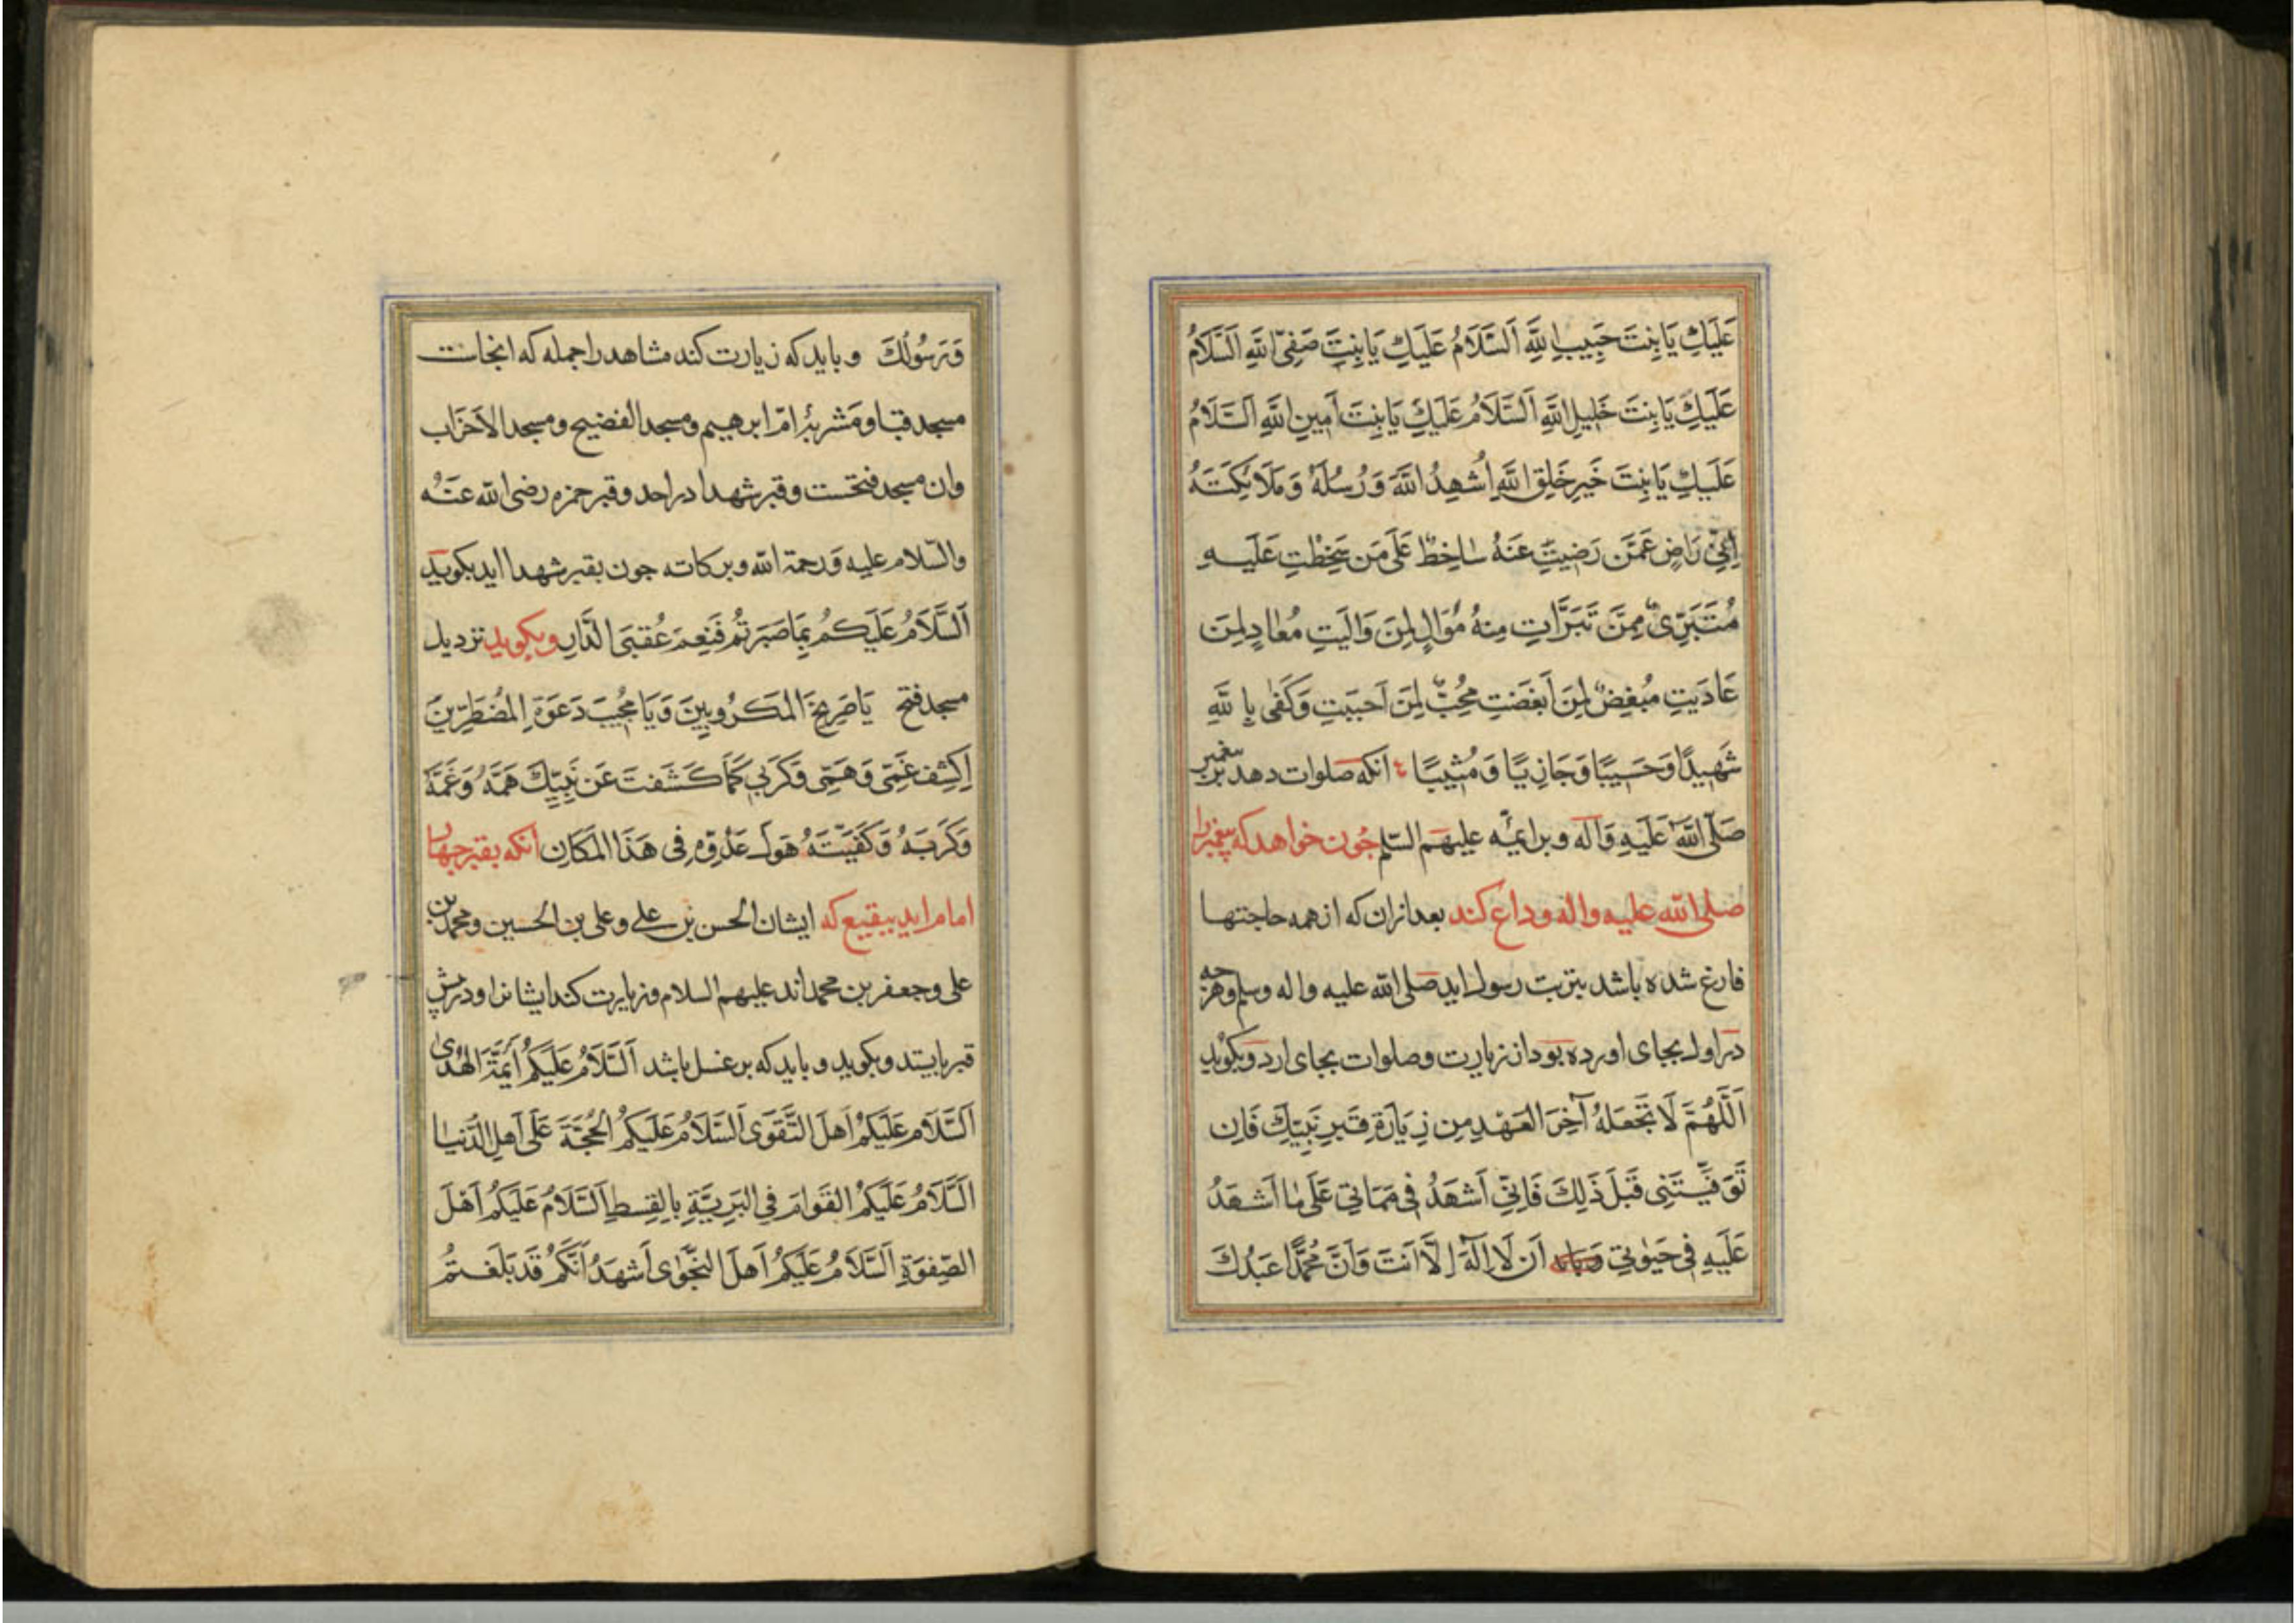 عَلَيكِ يَا بِنتَ حَبِيبِ اللَّهِ اَلسَّلَامُ عَلَيكِ يَا بِنتَ صَفِيِّ اللَّهِ اَلسَّلَامُ
عَلَيكِ يَا بِنتَ خَلِيلِ اللَّهِ اَلسَّلَامُ عَلَيكِ يَا بِنتَ اَمِينِ اللَّهِ اَلسَّلَامُ
عَلَيكِ يَا بِنتَ خَيرِ خَلقِ اللَّهِ اُشهِدُ اللَّهَ وَرُسُلَهُ وَمَلَائِكَتَهُ
اِنِّي رَاضٍ عَمَّن رَضِيتِ عَنهُ سَاخِطٌ عَلَى مَن سَخِطتِ عَلَيهِ
مُتَبَرِّئٌ مِمَّن تَبَرَّاتِ مِنهُ مُوَالٍ لِمَن وَالَيتِ مُعَادٍ لِمَن
عَادَيتِ مُبغِضٌ لِمَن اَبغَضتِ مُحِبٌّ لِمَن اَحبَبتِ وَكَفَى بِاللَّهِ
شَهِيدًا وَحَسِيبًا وَجَازِيًا وَمُثِيبًا انكه صلوات دهد بر پیغمبر
صَلَّى اللَّهُ عَلَيهِ وَآلِه وبر ائمه عليهم السلم جون خواهد كه پیغمبر را
صلى الله عليه واله وداع كند بعد ازان كه از همه حاجتها
فارغ شده باشد بتربت رسول ايد صلى الله عليه واله وسلم وهرچه
در اول بجاى اورده بود از زيارت وصلوات بجاى ارد وبكويد
اَللَّهُمَّ لَا تَجعَلهُ آخِرَ العَهدِ مِن زِيَارَةِ قَبرِ نَبِيِّكَ فَاِن
تَوَفَّيتَنِى قَبلَ ذَلِكَ فَاِنِّى اَشهَدُ فِى مَمَاتِى عَلَى مَا اَشهَدُ
عَلَيهِ فِى حَيوتِى اَن لَا اِلَهَ اِلَّا اَنتَ وَاَنَّ مُحَمَّدًا عَبدُكَ
وَرَسُولُكَ وبايد كه زيارت كند مشاهد را جمله كه انجاست
مسجد قبا ومَشربهٔ امّ ابرهيم ومسجد الفضيح ومسجد الاَحزَاب
وان مسجد فتحست وقبر شهدا در احد وقبر حمزه رضى الله عَنهُ
والسّلام عليه وَرحمة الله وبركاته جون بقبر شهدا ايد بكويد
اَلسَّلَامُ عَلَيكُم بِمَا صَبَرتُم فَنِعمَ عُقبَى الدَّارِ وبكويد نزديك
مسجد فتح يَا صَرِيخَ المَكرُوبِينَ وَيَا مُجِيبَ دَعوَةِ المُضطَرِّينَ
اِكشِف غَمِّى وَهَمِّى وَكَربِى كَمَا كَشَفتَ عَن نَبِيِّكَ هَمَّهُ وَغَمَّهُ
وَكَربَهُ وَكَفَيتَهُ هَولَ عَدُوِّهِ فِى هَذَا المَكَانِ انكه بقبر چهار
امام ايد ببقيع كه ايشان الحسن بن على وعلى بن الحسين ومحمد بن
على وجعفر بن محمد اند عليهم السلام وزيارت كند ايشانرا ودر پیش
قبر بايستد وبكويد وبايد كه بر غسل باشد اَلسَّلَامُ عَلَيكُم اَئِمَّةَ الهُدَى
اَلسَّلَامُ عَلَيكُم اَهلَ التَّقوَى اَلسَّلَامُ عَلَيكُم الحُجَّةَ عَلَى اَهلِ الدُّنيَا
اَلسَّلَامُ عَلَيكُم القَوَامَ فِى البَرِيَّةِ بِالقِسطِ اَلسَّلَامُ عَلَيكُم اَهلَ
الصِّفوَةِ اَلسَّلَامُ عَلَيكُم اَهلَ النَّجوَى اَشهَدُ اَنَّكُم قَد بَلَّغتُم